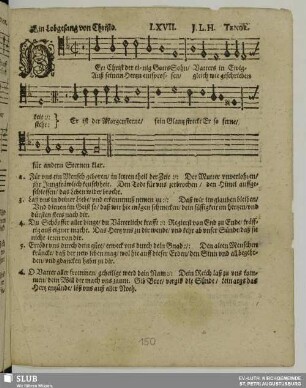 Ein Lobgesang von Christo. LXVII. J. L. H. TENOR.
Er Christ der einig Gotts Sohn/ Vatters in Ewig-
Auß seinem Hertzn entsprossen/ gleich wie geschrieben
keit ::
stehet: Er ist der Morgensterne/ sein Glantz streckt Er so ferne/
für andern Sternen klar.
2. Für uns ein Mensch geboren/ im letzten theil der Zeit :: Der Mutter unverlohren/
ihr Jungfräwlich keuschheit. Den Todt für uns zerbrochen/ den Himel auffge-
schlossen/ das Leben wider bracht.
3. Laß uns in deiner liebe/ und erkentnis nemen zu ::
Und dienen im Geist so/ daß wir hie mögen schmecken/ dein süssigkeit im Hertzen/ und
dürsten stets nach dir.
4. Du Schöpffer aller dinge/ du Vätterliche krafft :: Regierst von End zu Ende/ kräff-
tig auß eigner macht. Das Hertz uns zu dir wende/ und kehr ab unser Sünde/ daß sie
5. Ertödt uns durch dein güte/ erweck uns durch dein Gnad :: Den alten Menschen
kräncke/ daß der new leben mag/ wol hie auff dieser Erden/ den Sinn und all begehr-
den/ und gdancken haben zu dir.
6. O Vatter aller frommen/ geheiligt werd dein Nam :: Dein Reich laß zu uns kom-
150
SLUB
Wir führen Wissen.
EV.-LUTH. KIRCHGEMEINDE
ST. PETRI AUGUSTUSBURG